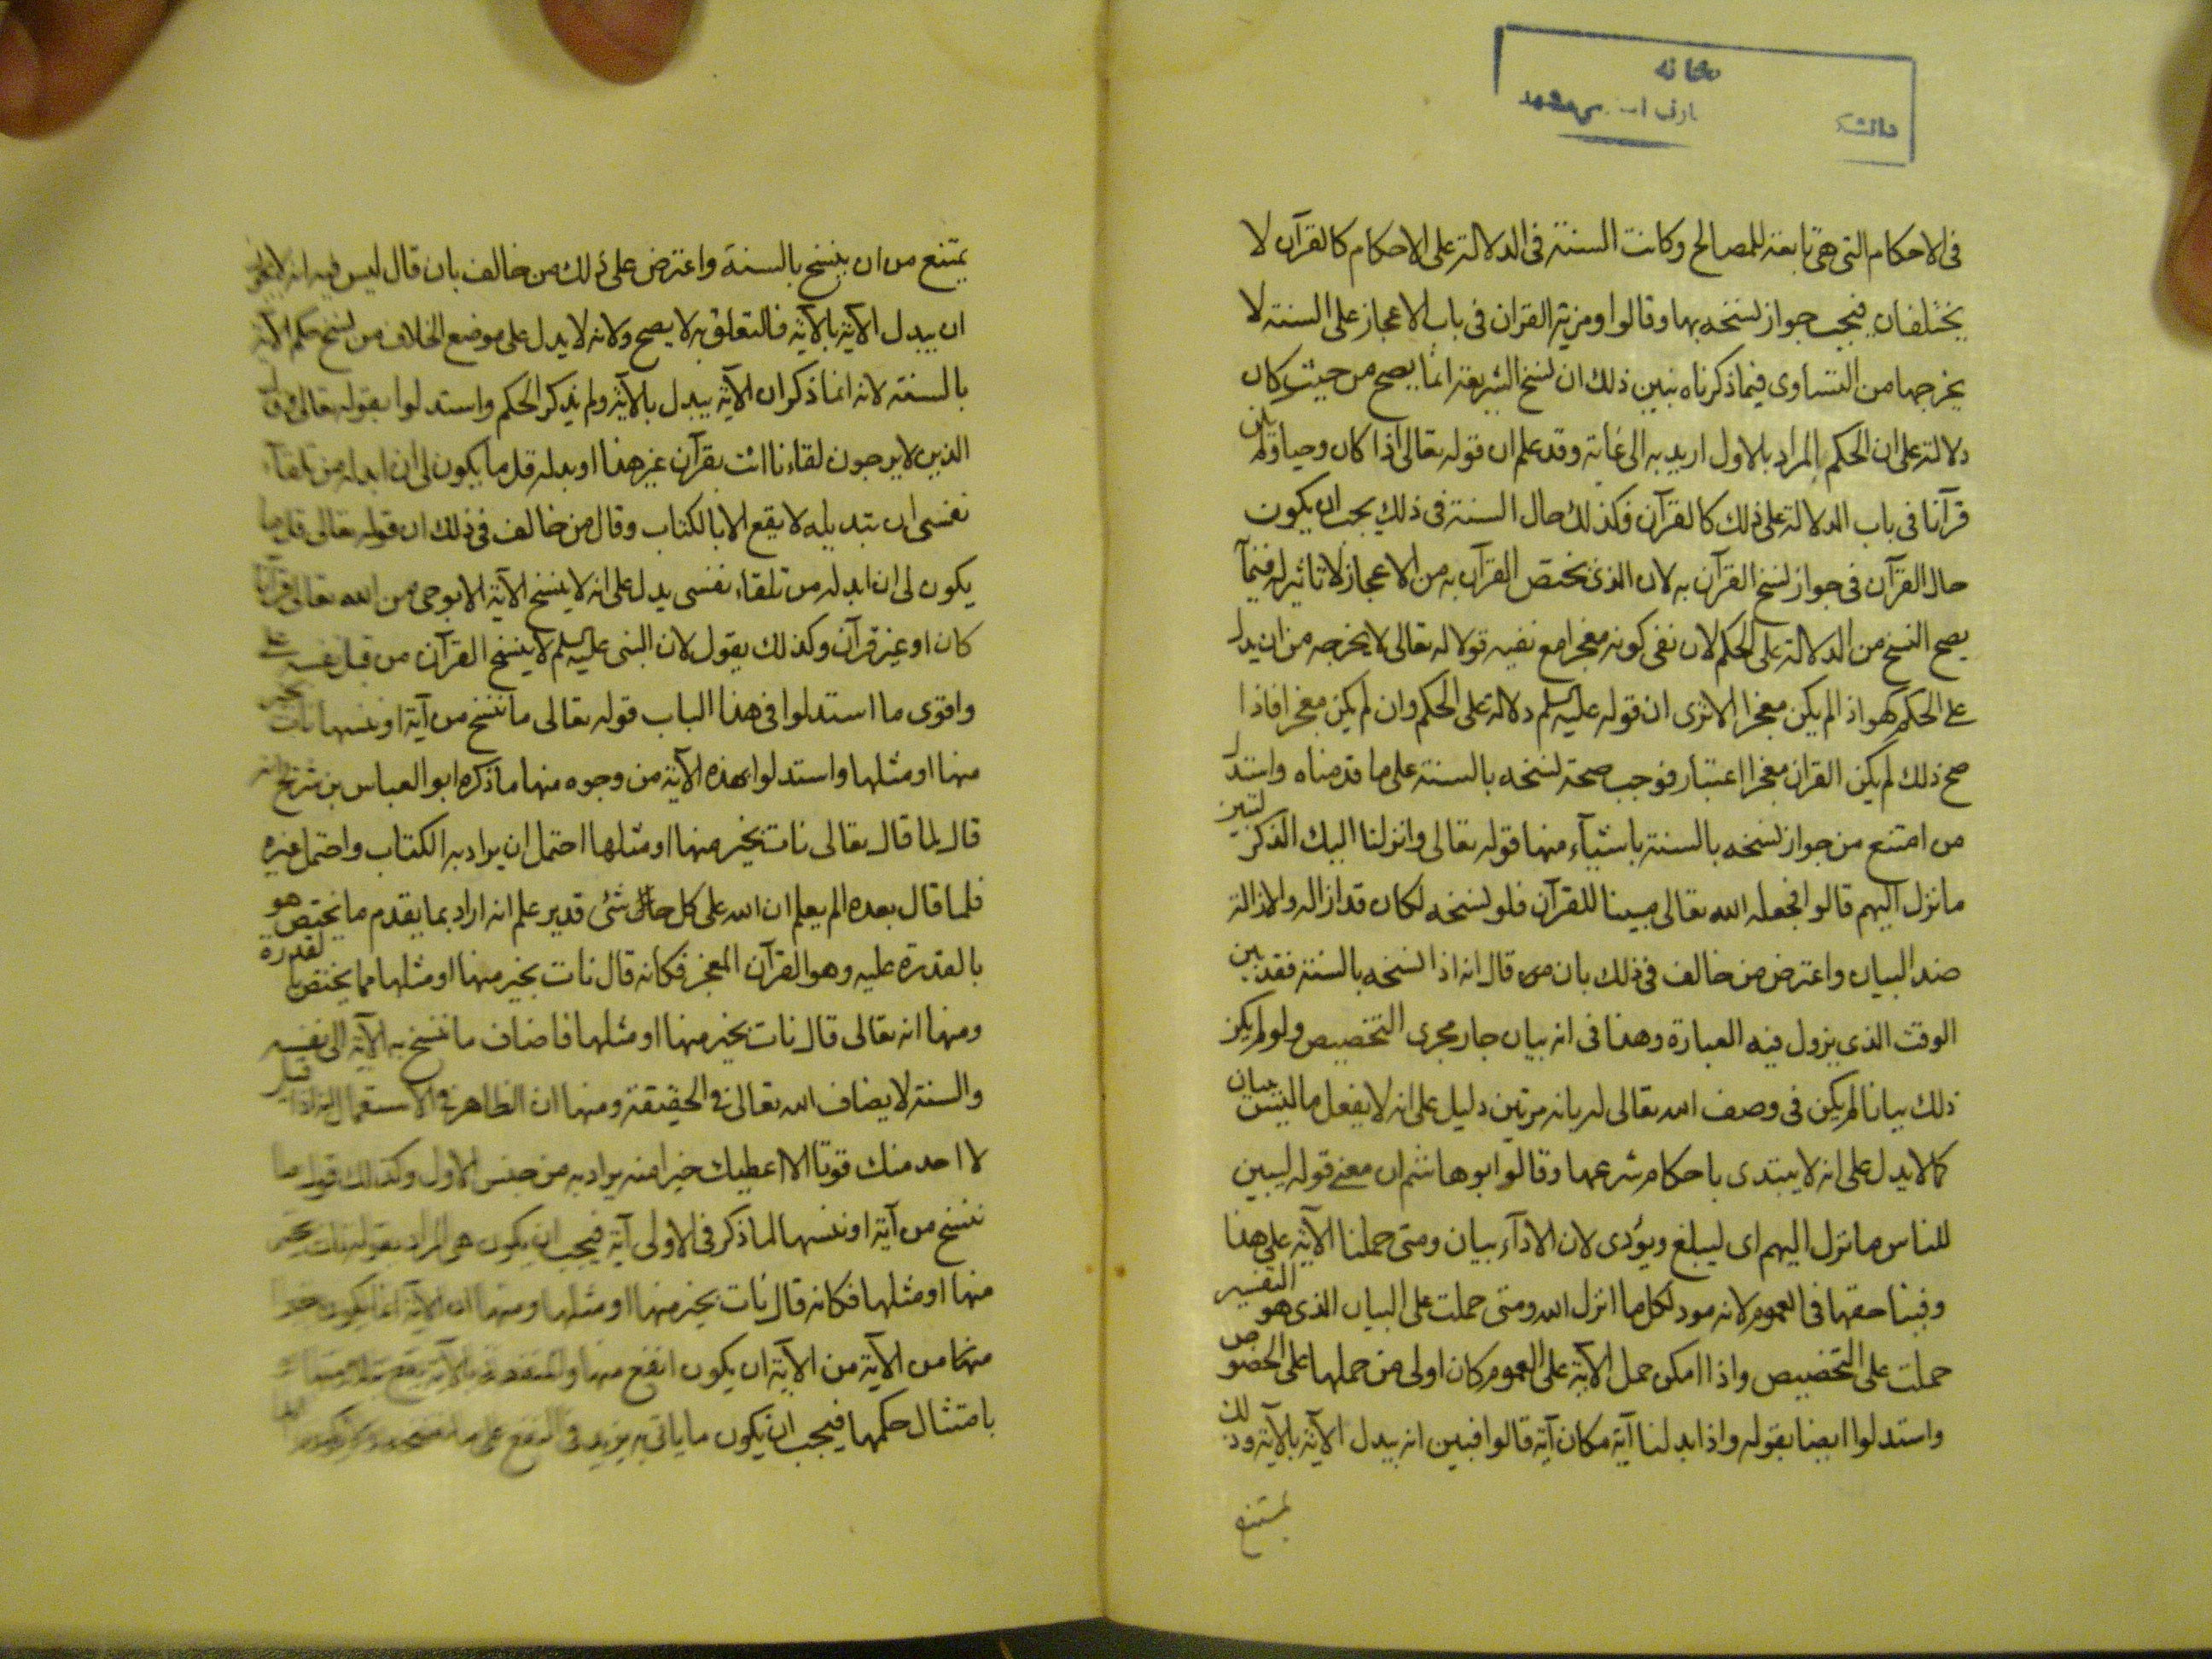 في الاحكام التي هي تابعة للمصالح وكانت السنة في الدلالة على الاحكام كالقرآن لا
يختلفان فيجب جواز نسخه بها وقالوا ومزية القران في باب الاعجاز على السنة لا
يخرجها من التساوى فيما ذكرناه نبين ذلك ان نسخ الشريعة انما يصح من حيث كان
دلالة على ان الحكم المراد بالاول اريد به الى غاية وقد علم ان قوله تعالى اذا كان وحيا ولم يكن
قرآنا في باب الدلالة على ذلك كالقرآن فكذلك حال السنة في ذلك يجب ان يكون
حال القرآن في جواز نسخ القرآن به لان الذي يختص القرآن به من الاعجاز لا تاثير له فيما
يصح النسخ من الدلالة على الحكم لان نفى كونه معجزا مع نفيه قولا له تعالى لا يخرجه من ان يدل
على الحكم كهو اذ الم يكن معجزا الا ترى ان قوله عليه السلم دلالة على الحكم وان لم يكن معجزا فاذا
صح ذلك لم يكن القران معجزا اعتبار فوجب صحة نسخه بالسنة على ما قدمناه واستدل
من امتنع من جواز نسخه بالسنة باشيآء منها قوله تعالى وانزلنا اليك الذكر لتبين
ما نزل اليهم قالوا فجعله الله تعالى مبينا للقرآن فلو نسخه لكان قد ازاله والازالة
ضد البيان واعترض من خالف في ذلك بان من قال انه اذا نسخه بالسنة فقد بين
الوقت الذي يزول فيه العبارة وهذا في انه بيان جار مجرى التخصيص ولو لم يكن
ذلك بيانا لم يكن في وصف الله تعالى له بانه مرتين دليل على انه لا يفعل ما ليس ببيان
كما لا يدل على انه لا يبتدى باحكام شرعها وقالوا ابو هاشم ان معنى قوله ليبين
للناس ما نزل اليهم اى ليبلغ ويؤدى لان الادآء بيان ومتى حملنا الآية على هذا
وفينا حقها في العموم لانه مود لكل ما انزل الله ومتى حملت على البيان الذي هو التفسير
حملت على التخصيص واذا امكن حمل الآية على العموم كان اولى من حملها على الخصوص
واستدلوا ايضا بقوله واذا بدلنا آية مكان آية قالوا فبين انه يبدل الآية بالآية وذلك
يمتنع
يمتنع من ان ينسخ بالسنة واعترض على ذلك من خالف بان قال ليس فيه انه لا
ان يبدل الآية بالآية فالتعلق به لا يصح ولانه لا يدل على موضع الخلاف من نسخ حكم الآية
بالسنة لانه انما ذكر ان الآية يبدل بالآية ولم يذكر الحكم واستدلوا بقوله تعالى قال
الذين لا يرجون لقاءنا ائت بقرآن غير هذا او بدله قل ما يكون لى ان ابدله من تلقآء
نفسى ان تبديله لا يقع الا بالكتاب وقال من خالف في ذلك ان قوله تعالى قل ما
يكون لى ان ابدله من تلقاء نفسى يدل على انه لا ينسخ الآية الا بوحى من الله تعالى قرآنا
كان او غير قرآن وكذلك يقول لان النبى عليه السلم لا ينسخ القرآن من قبل نفسه
واقوى ما استدلوا في هذا الباب قوله تعالى ما ننسخ من آية او ننسها نات بخير
منها او مثلها واستدلوا بهذه الآية من وجوه منها ما ذكره ابو العباس بن شريح انه
قال لما قال تعالى نات بخير منها او مثلها احتمل ان يراد به الكتاب واحتمل غيره
فلما قال بعده الم يعلم ان الله على كل شئ قدير علم انه اراد بما يقدم ما يختص هو
بالقدرة عليه وهو القرآن المعجز فكانه قال نات بخير منها او مثلها مما يختص بالقدرة
ومنها انه تعالى قال نات بخير منها او مثلها فاضاف ما ننسخ به الآية الى نفسه
والسنة لا يضاف الله تعالى في الحقيقة ومنها ان الظاهر في الاستعمال انه اذا قيل
لا احد منك قوتا الا اعطيك خيرا منه يراد به من جنس الاول وكذلك قوله ما
ننسخ من آية او ننسها لما ذكر في الاولى آية فيجب ان يكون هى المراد بقوله نات بخير
منها او مثلها فكانه قال نات بخير منها او مثلها ومنها ان الآية انما يكون خيرا
منها من الآية من الآية ان يكون انفع منها والمنفعة بالآية يقع
بامتثال حكمها فيجب ان يكون ما ياتى به يزيد في النفع على ما